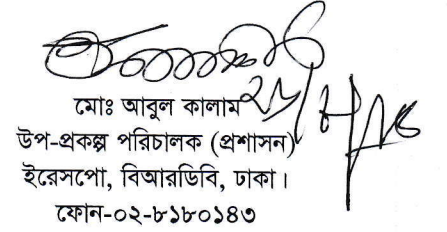 মোঃ আবুল কালাম
উপ-প্রকল্প পরিচালক (প্রশাসন)
ইরেসপো, বিআরডিবি, ঢাকা।
ফোন-০২-৮১৮০১৪৩